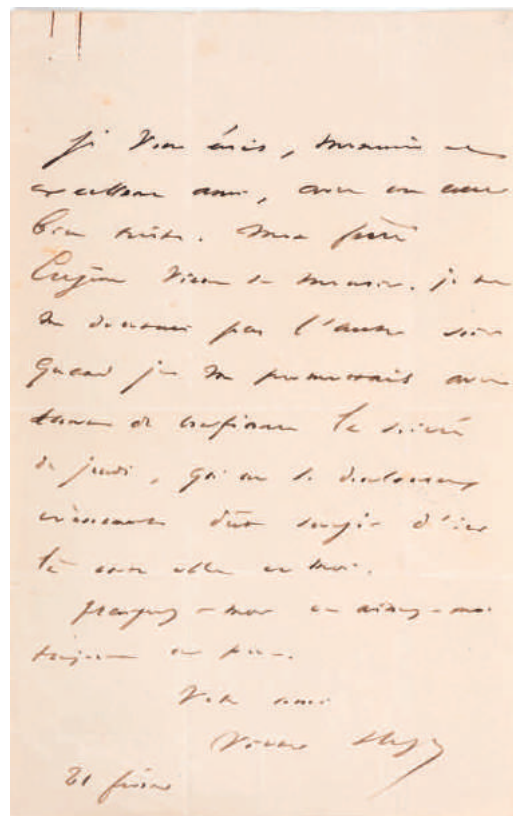 je vous écris, monsieur et
excellent ami, avec un cœur
bien triste. Mon frère
Eugène vient de mourir. je ne
me doutais pas l'autre soir
quand je me promettais avec
tant de confiance la soirée
de jeudi, qu'un si douloureux
événement dût surgir d'ici
là entre elle et moi.
plaignez-moi et aimez-moi
toujours un peu.
Votre ami
Victor Hugo
21 février